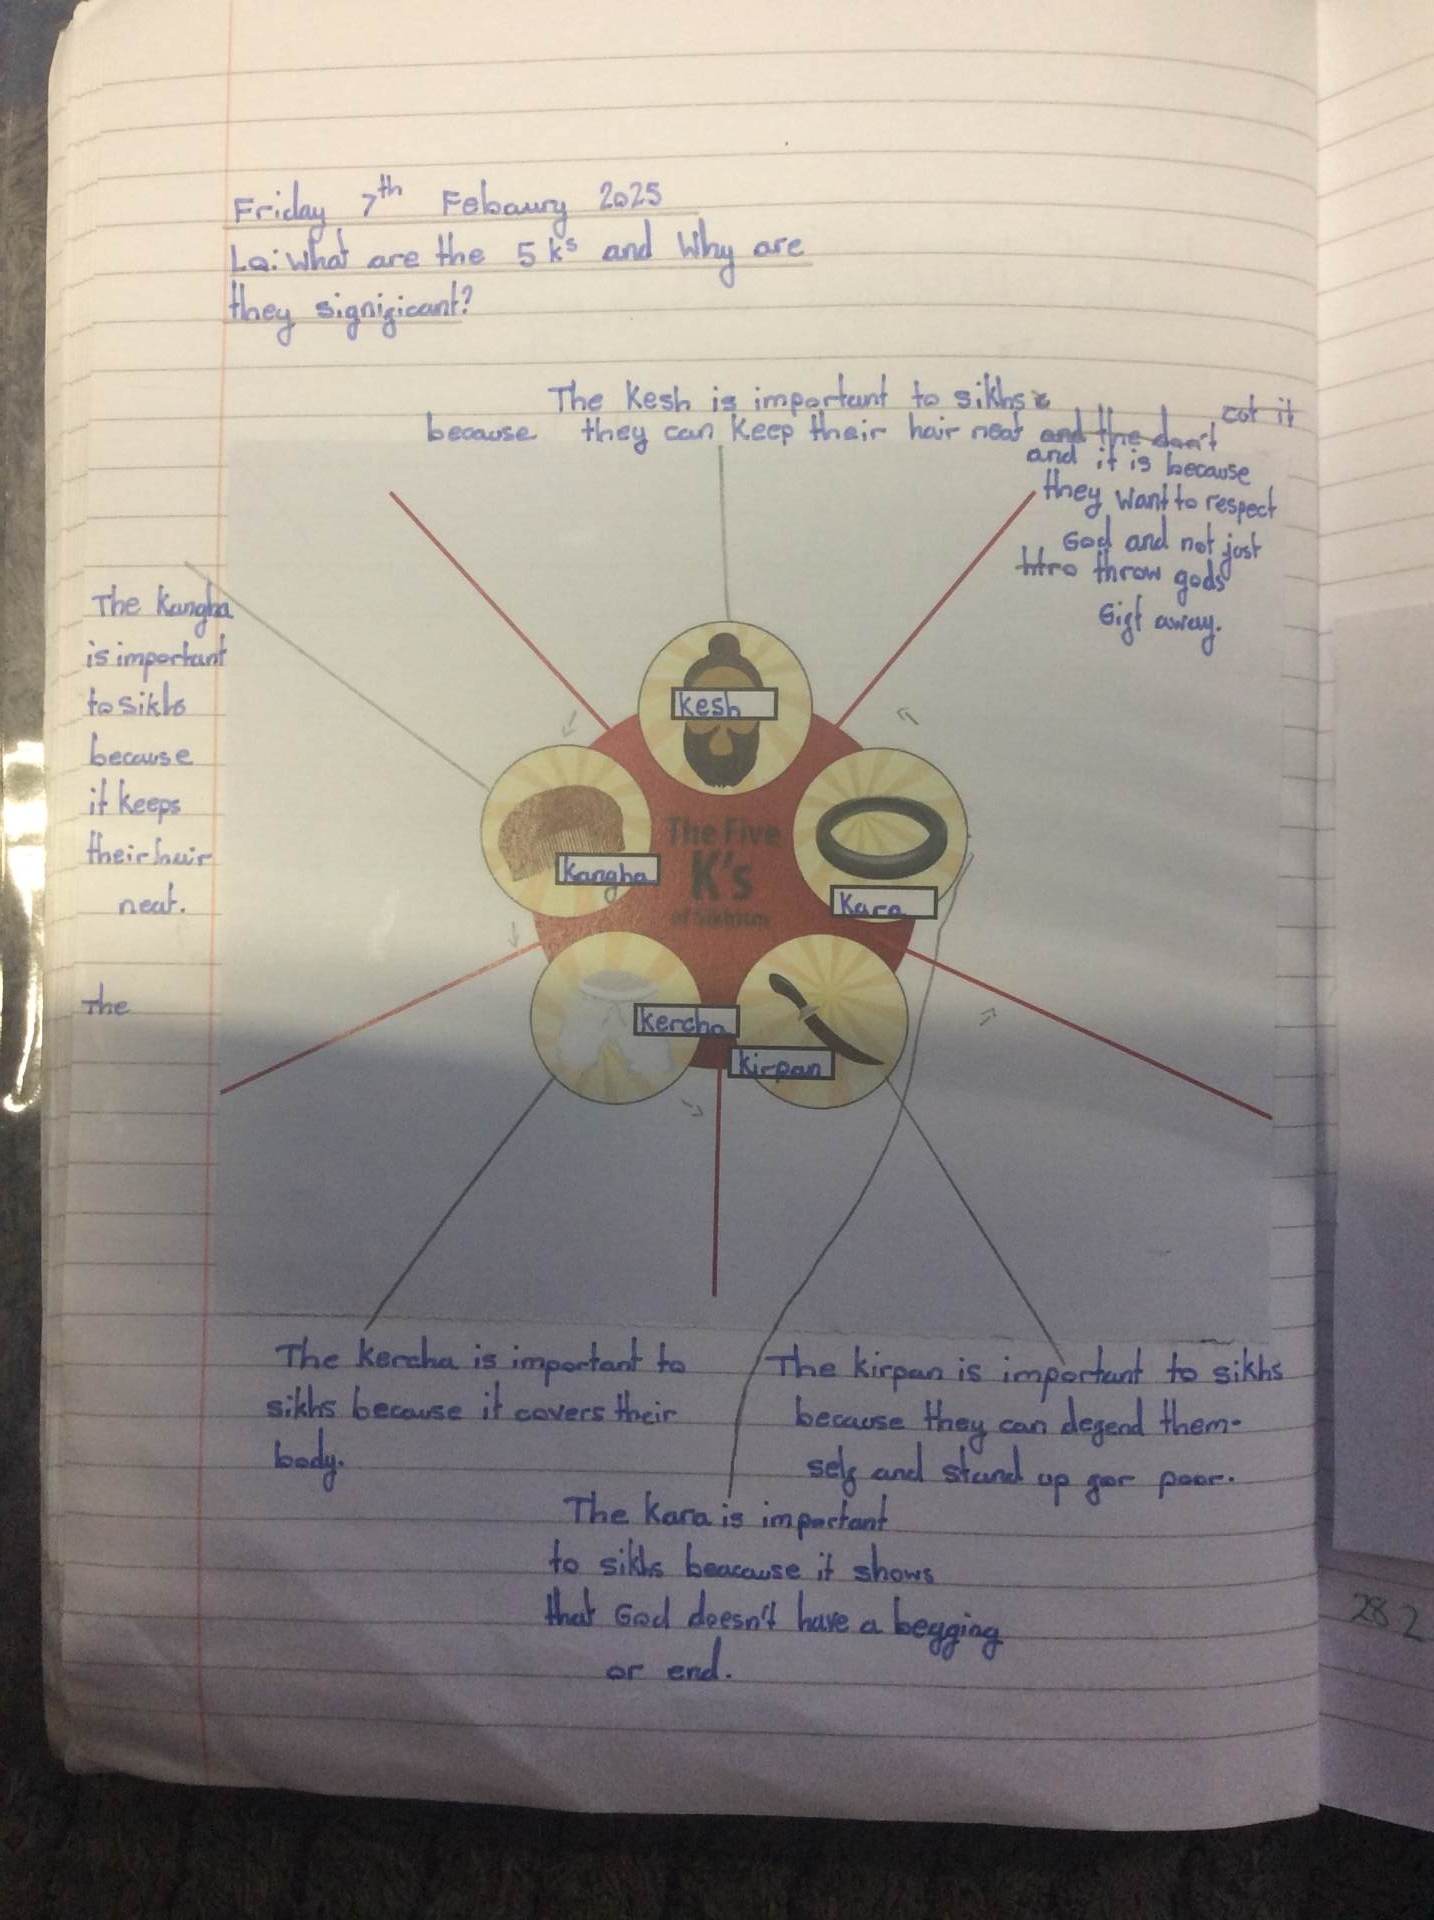 Friday 7th Febaury 2025
LQ: What are the 5 ks and Why are
they significant?
The Kesh is important to sikhs
because they can keep their hair neat and the don't cot it
and it is because
they want to respect
God and not just
thro throw gods
Gift away.
The Kangha
is important
to sikhs
because
it keeps
their hair
neat.
The
Kesh
Kangha
The Five
K's
of Sikhism
Kara
kercha
kirpan
The kercha is important to
sikhs because it covers their
body.
The kirpan is important to sikhs
because they can defend them-
self and stand up for poor.
The kara is important
to sikhs beacause it shows
that God doesn't have a begging
or end.
282